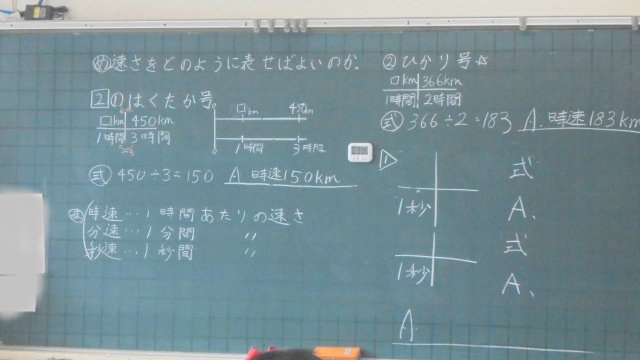 め 速さをどのように表せばよいのか。
2 のはくたか号
□km 450km
1時間 3時間
□km 450km
1時間 3時間
式 450÷3=150 A. 時速150km
ま 時速…1時間あたりの速さ
分速…1分間 〃
秒速…1秒間 〃
② ひかり号☆
□km 366km
1時間 2時間
式 366÷2=183 A. 時速183km
1
式
1秒 A.
式
1秒 A.
A.